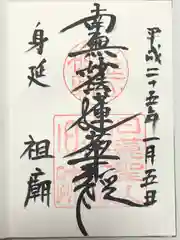 平成二十五年一月五日
南無妙法蓮華経
身延
祖廟